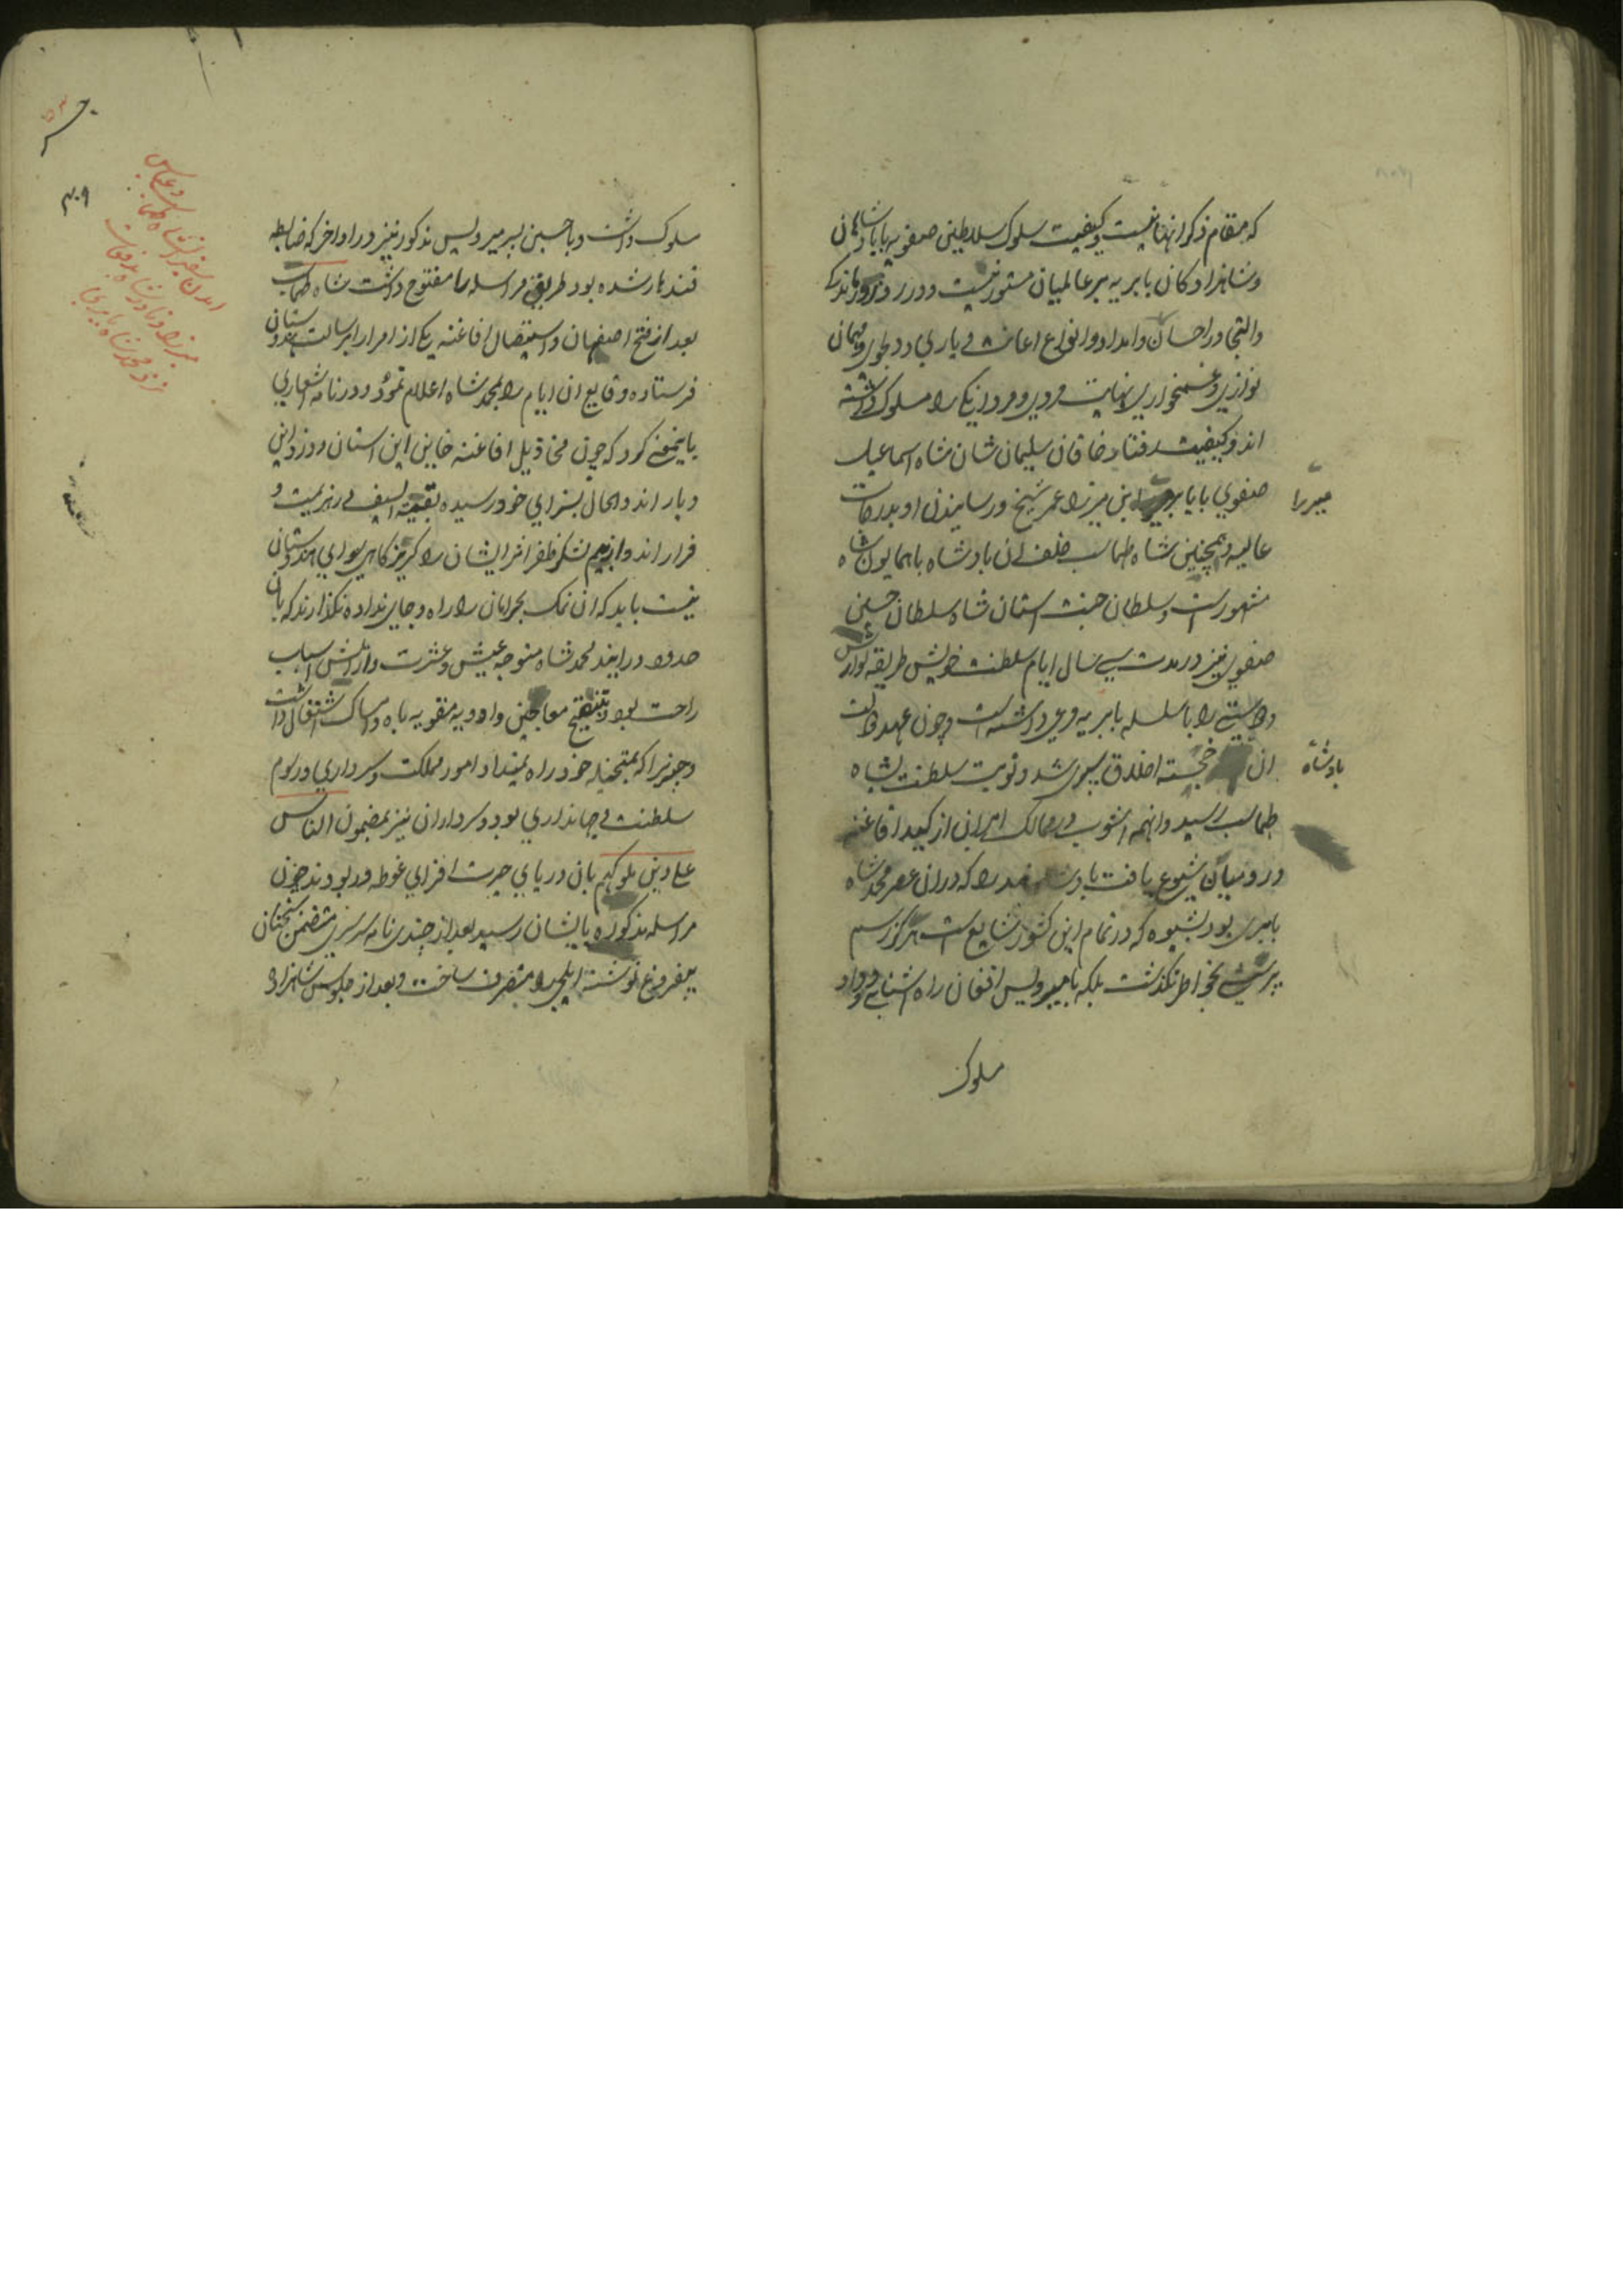 که مقام ذکر انها نیست و کیفیت سلوک سلاطین صفویه با پادشاهان
و شاهزادکان بابریه بر عالمیان مستور نیست و در روز
والتجا در احسان و امداد و انواع اعانت و یاری و دلجوی و مهمان
نوازی و غمخواری نهایت مردی و مردانکی را مسلوک داشته
اند و کیفیت رفتار خاقان سلیمان شان شاه اسماعیل
صفوی با بابر ابن میرزا عمر شیخ و رسانیدن او بدرجات
میرزا
عالیه و همچنین شاه طهماسب خلف ان بادشاه با همایون شاه
مشهورست و سلطان جنت استان شاه سلطان حسین
صفوی نیز در مدت سی سال ایام سلطنت خویش طریقه
و دوستی را با سلسله بابریه مرعی داشته است و چون عهد دولت
ان خجسته اخلاق سپری شد و نوبت سلطنت بشاه
بادشاه
طهماسب رسید و انهمه اشوب در ممالک ایران از کید افاغنه
و رومیان شیوع یافت بادشاه هند را که دران عصر محمد شاه
بابری بود بشیوه که در تمام این کشور شایع است هرکز رسم
پرسشی بخاطر نکذشت بلکه با میر ویس افغان راه اشنایی و وداد
سلوک
سلوک داشت و با حسین پسر میر ویس مذکور نیز در اواخر که ضابط
قندهار شده بود طریق مراسله را مفتوح داشت شاه طهماسب
بعد از فتح اصفهان و استیصال افاغنه یکی از امرا را برسالت هندوستان
فرستاده وقایع ان ایام را بمحمد شاه اعلام نمود و در نامه اشعاری
باینمعنی کرد که چون مخاذیل افاغنه خاین این استان و دزد این
دیار اند و الحال بسزای خود رسیده بقیة السیف در هزیمت و
فرار اند و از بیم لشکر ظفر اثر ایشان را کریزکاهی سوای هندوستان
نیست باید که ان نمک بحرامان را راه و جای نداده نکذارند که بان
حدود درایند محمد شاه متوجه عیش و عشرت و ارایش اسباب
راحت بود و بتنقیح معاجین و ادویه مقویه باه و امساک اشتغال داشت
و جز نرا که بمتخیله خود راه نمیداد امور مملکت و سرداری و رسوم
سلطنت و جهانداری بود و سرداران نیز بمضمون الناس
علی دین ملوکهم بان دریای حیرت افزای غوطه ور بودند چون
مراسله مذکوره بایشان رسید بعد از چندی نامه سرسری متضمن سخنان
بیفروغ نوشته ایلچی را منصرف ساخت و بعد از جلوس شاهزاده
۴۰۹